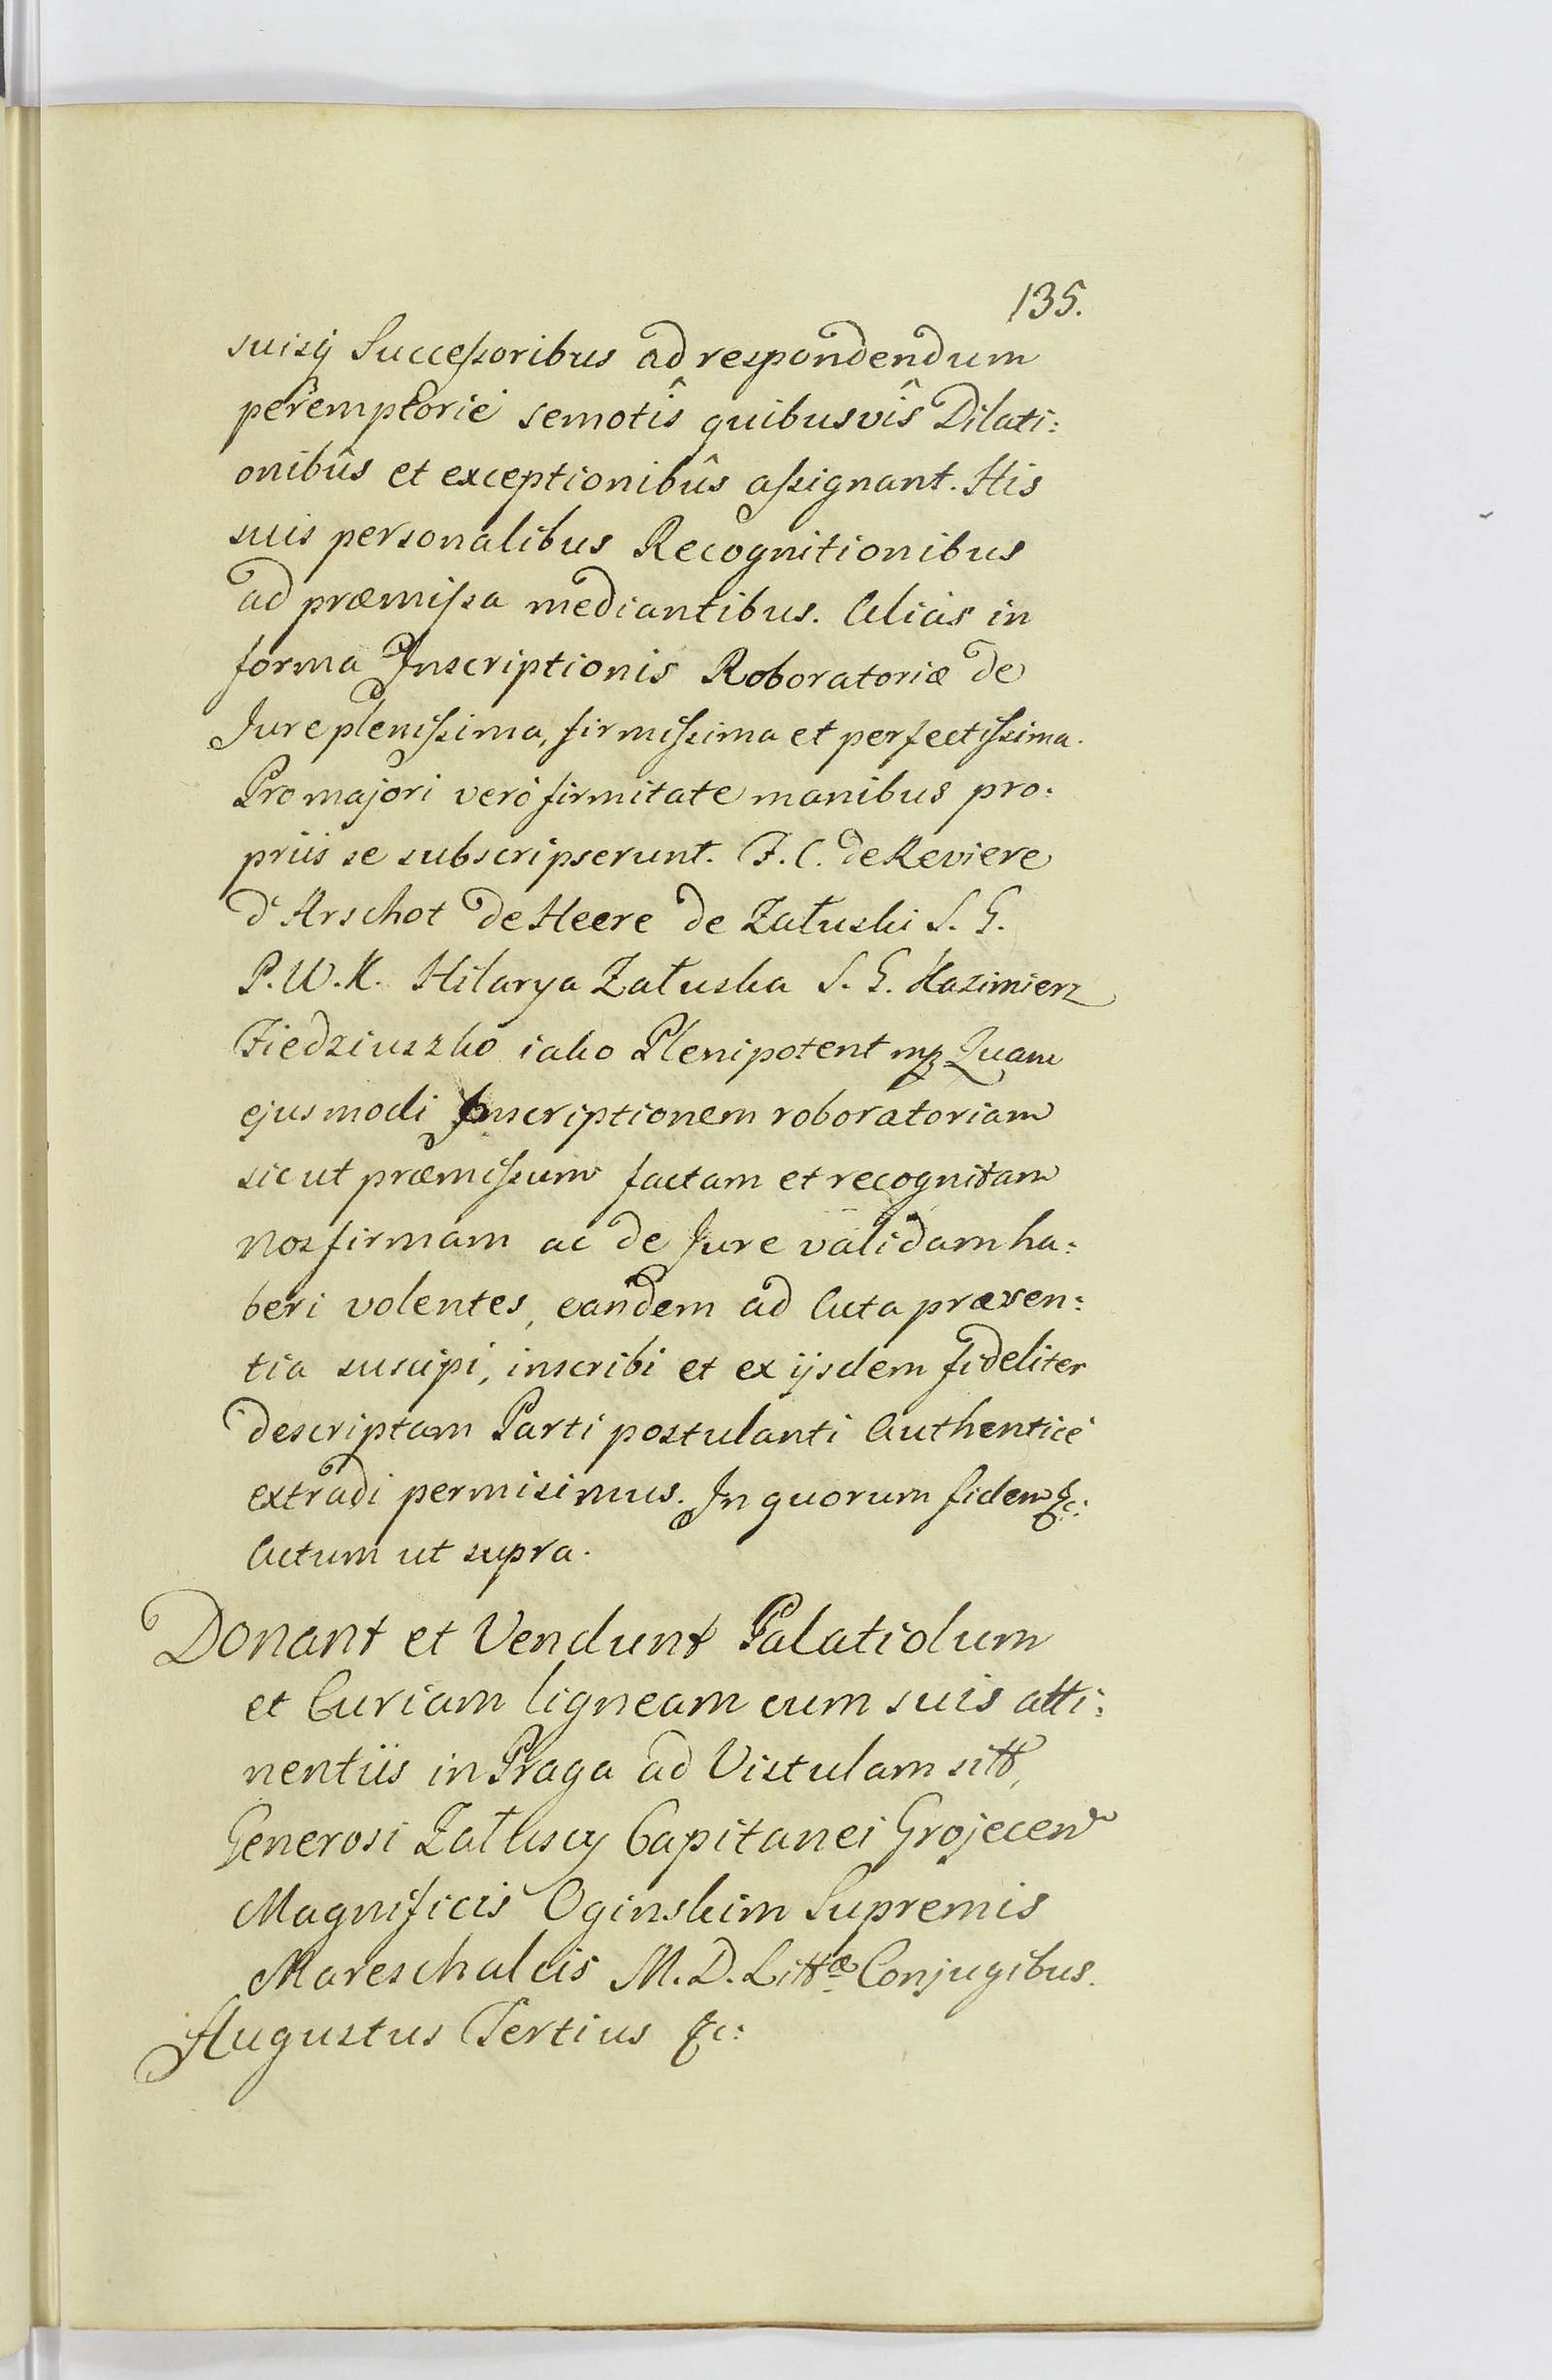 135.
suisq Successoribus ad respondendum
peremptorié semotîs quibusvîs Dilati:
onibûs et exceptionibûs assignant. His
suis personalibus Recognitionibus
ad præmissa mediantibus. Aliás in
forma Inscriptionis Roboratoriæ de
Jure plenissima, firmissima et perfectissima.
Pro majori veró firmitate manibus pro:
priis se subscripserunt. F. C. de Reviere
d'Arschot de Heere de Załuski S. G.
P. W. K. Hilarya Załuska S. G. Kazimierz
Fiedziuszko iako Plenipotent mp Quam
ejusmodi Inscriptionem roboratoriam
sicut præmissum factam et recognitam
nos firmam ac de Jure validam ha:
beri volentes, eandem ad Acta præsen:
tia suscipi, inscribi et ex ijsdem fideliter
descriptam Parti postulanti Authenticé
extradi permisimus. In quorum fidem &c:
Actum ut supra.
Donant et Vendunt Palatiolum
et Curiam ligneam cum suis atti:
nentiis in Praga ad Vistulam sitt,
Generosi Załuscy Capitanei Grojecen
Magnificis Oginskim Supremis
Mareschalcis M. D. Littæ Conjugibus.
Augustus Tertius &c: